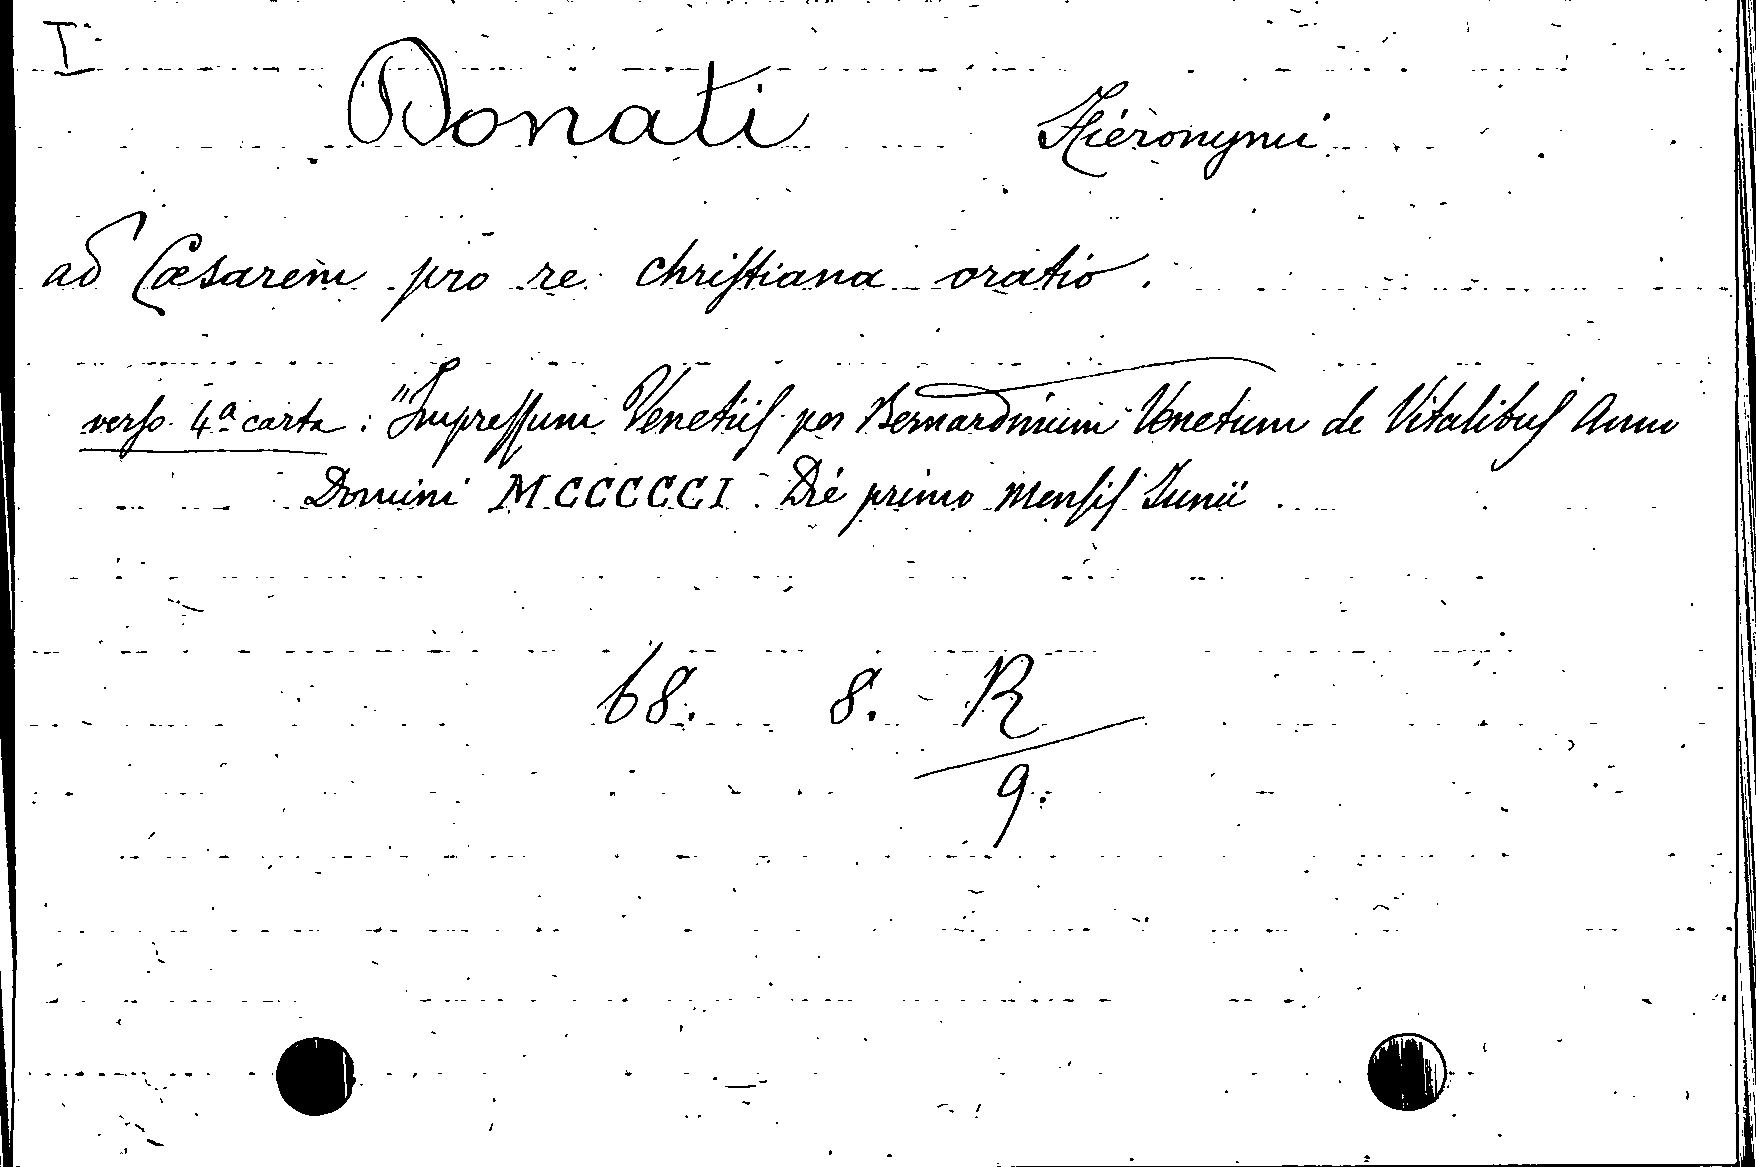 I
Donati Hieronymi
ad Cæsarem pro re christiana oratio.
verso 4ª carta : "Impressum Venetiis per Bernardinum Venetum de Vitalibus Anno
Domini MCCCCCI Die primo Mensis Iunii
68. 8. R
9.